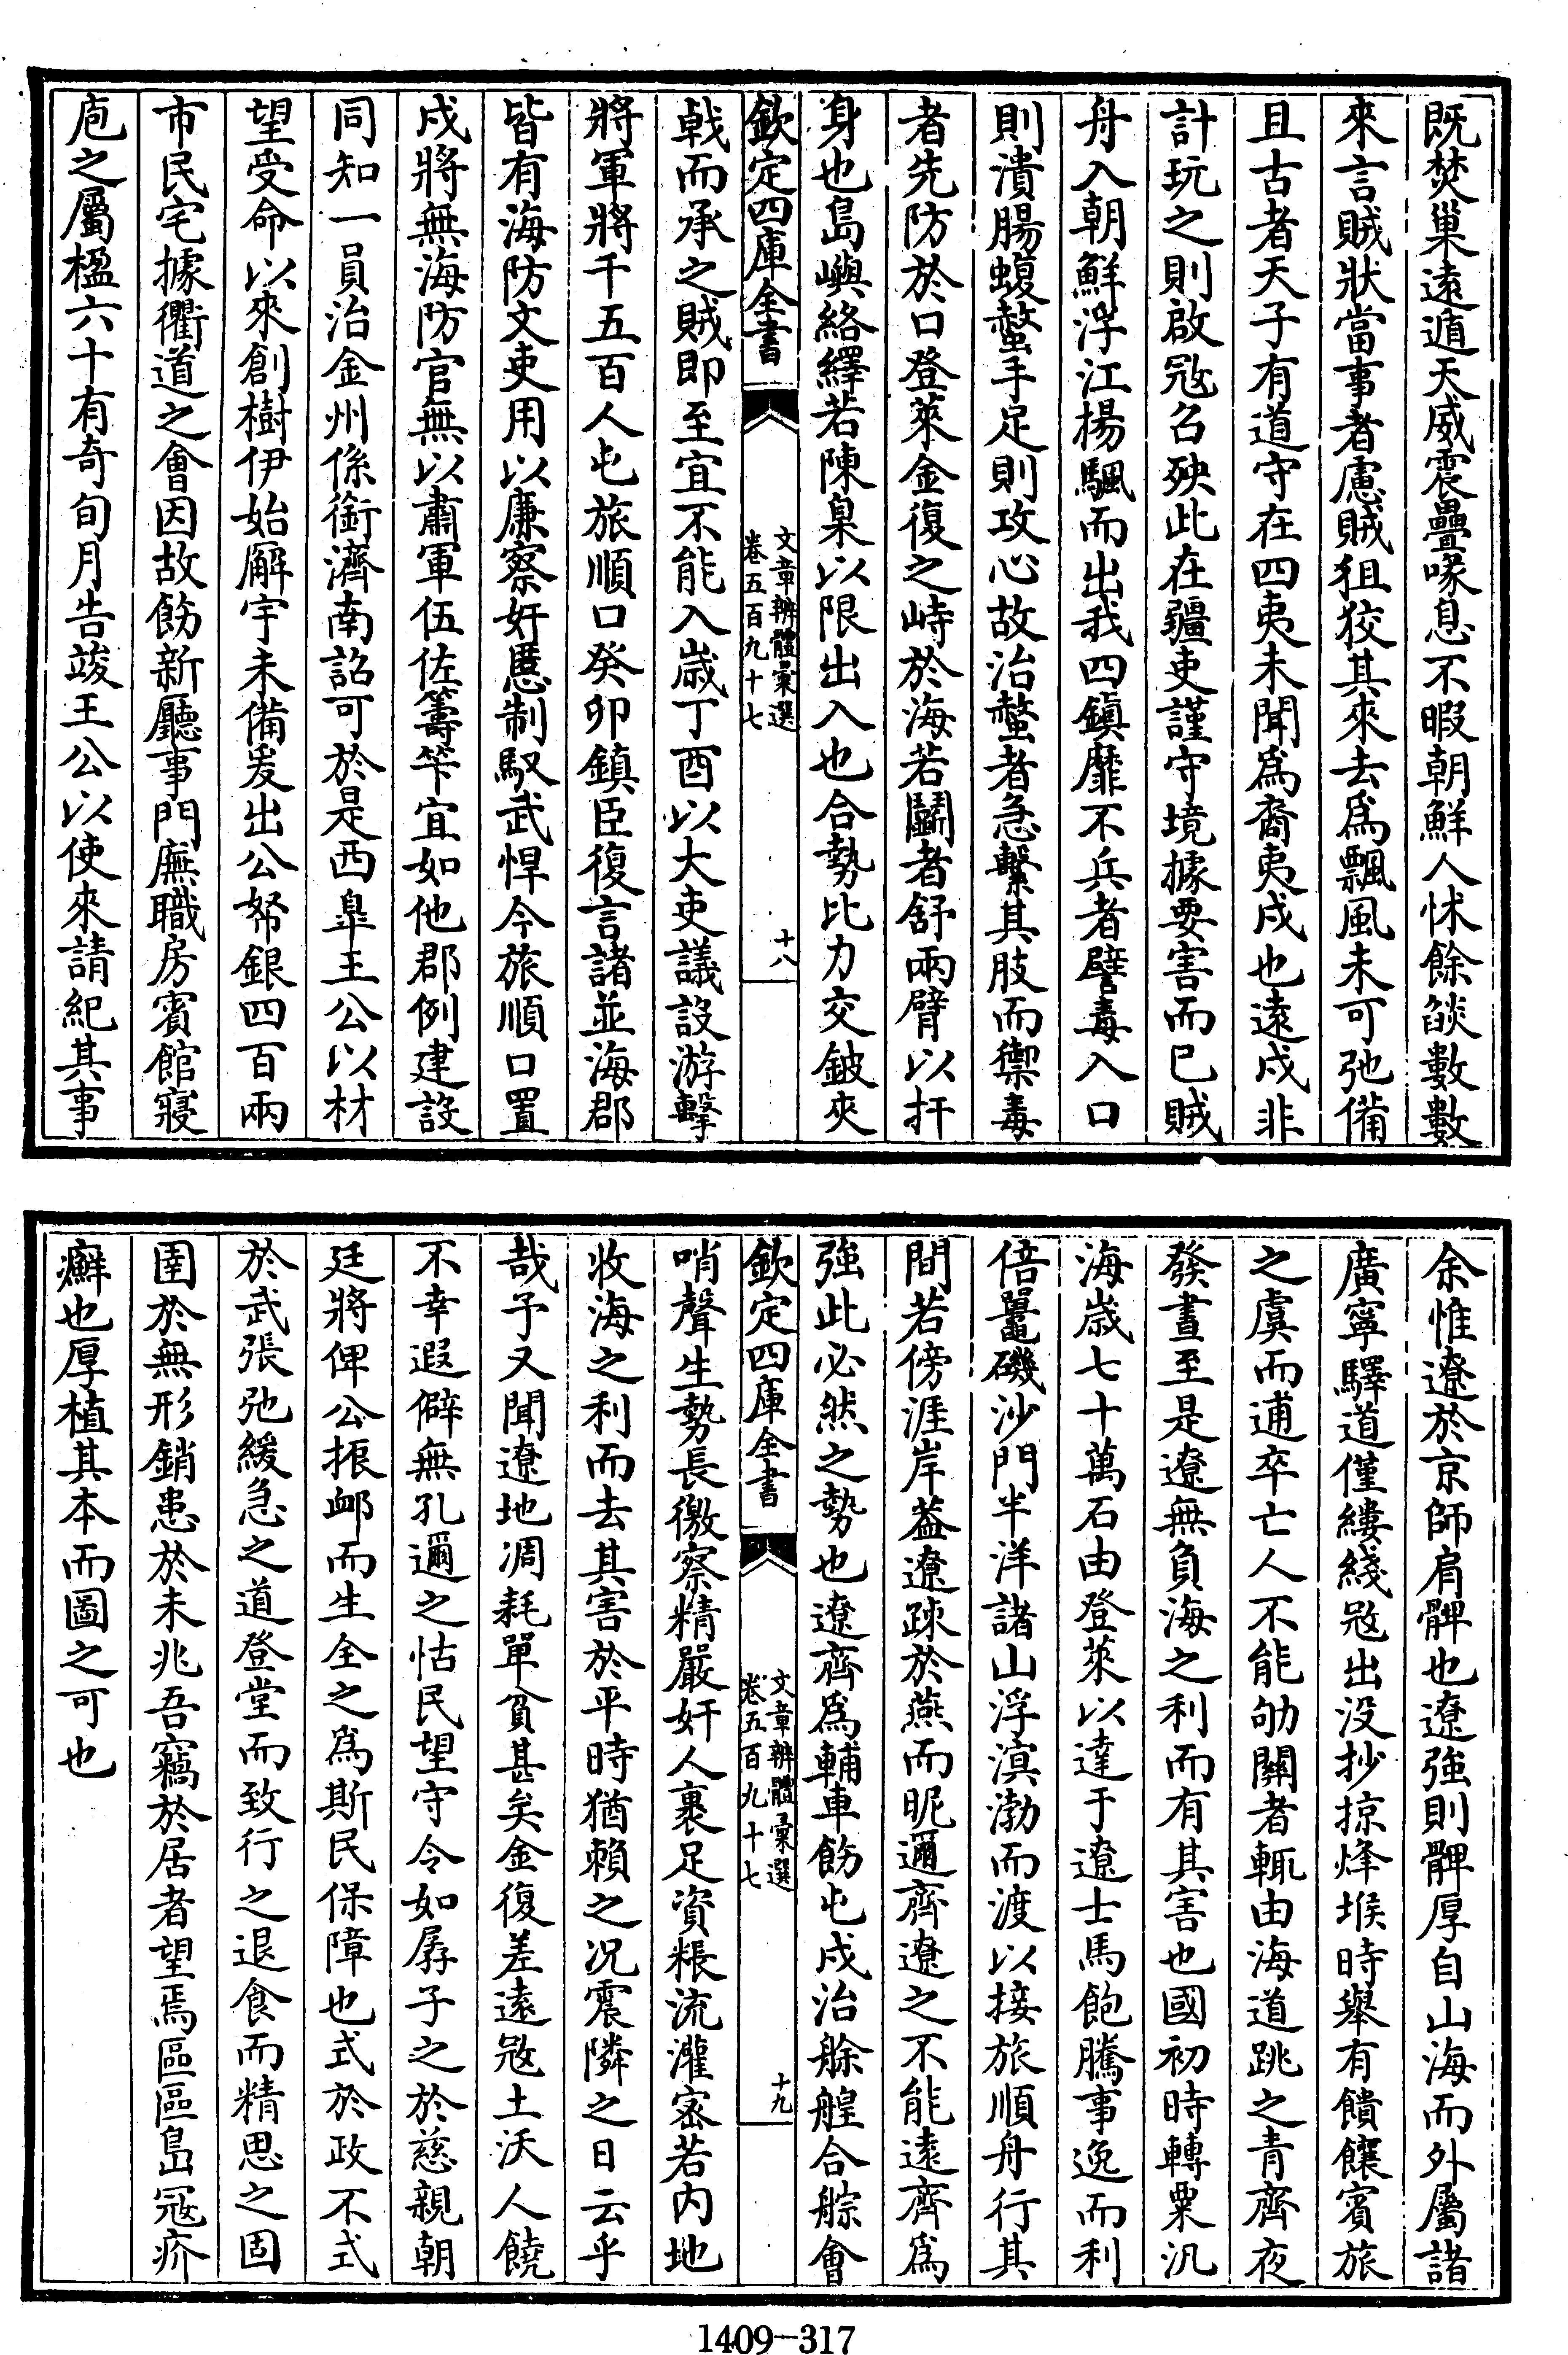 既焚巢遠遁天威震疊喙息不暇朝鮮人怵餘燄數數
來言賊狀當事者慮賊狙狡其來去爲飄風未可弛備
且古者天子有道守在四夷未聞爲裔夷戍也遠戍非
計玩之則啟宼召殃此在疆吏謹守境據要害而已賊
舟入朝鮮浮江揚颿而出我四鎮靡不兵者譬毒入口
則潰腸蝮螫手足則攻心故治螫者急繫其肢而禦毒
者先防於口登萊金復之峙於海若鬬者舒兩臂以扞
身也島嶼絡繹若陳臬以限出入也合勢比力交鈹夾
欽定四庫全書
文章辨體彙選
卷五百九十七
十八
戟而承之賊即至宜不能入歲丁酉以大吏議設游擊
將軍將千五百人屯旅順口癸卯鎮臣復言諸並海郡
皆有海防文吏用以廉察奸慝制馭武悍今旅順口置
戍將無海防官無以肅軍伍佐籌筭宜如他郡例建設
同知一員治金州係銜濟南詔可於是西臯王公以材
望受命以來創樹伊始廨宇未備爰出公帑銀四百兩
市民宅據衢道之會因故飭新廳事門廡職房賓館寢
庖之屬楹六十有奇旬月告竣王公以使來請紀其事
余惟遼於京師肩髀也遼強則髀厚自山海而外屬諸
廣寧驛道僅縷綫宼出没抄掠烽堠時舉有饋饟賓旅
之虞而逋卒亡人不能劾關者輒由海道跳之青齊夜
發晝至是遼無負海之利而有其害也國初時轉粟汎
海歲七十萬石由登萊以達于遼士馬飽騰事逸而利
倍鼉磯沙門半洋諸山浮溟渤而渡以接旅順舟行其
間若傍涯岸葢遼疎於燕而昵邇齊遼之不能遠齊爲
強此必然之勢也遼齊爲輔車飭屯戍治艅艎合艅會
欽定四庫全書
文章辨體彙選
卷五百九十七
十九
哨聲生勢長徼察精嚴奸人裹足資粻流灌宻若内地
收海之利而去其害於平時猶賴之况震隣之日云乎
哉予又聞遼地凋耗單貧甚矣金復差遠宼土沃人饒
不幸遐僻無孔邇之怙民望守令如孱子之於慈親朝
廷將俾公振䘏而生全之爲斯民保障也式於政不式
於武張弛緩急之道登堂而致行之退食而精思之固
圉於無形銷患於未兆吾竊於居者望焉區區島宼疥
癬也厚植其本而圖之可也
1409-317